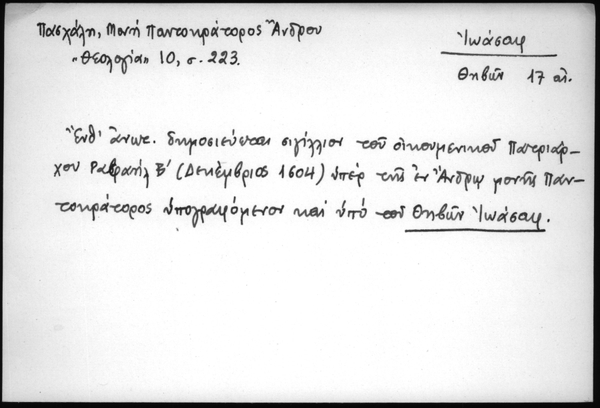 Πασχάλη, Μονή Παντοκράτορος Ἄνδρου
«Θεολογία» 10, σ. 223.
Ἰωάσαφ
Θηβῶν 17 αἰ.
Ἔνθ' ἄνωτ. δημοσιεύεται σιγίλλιον τοῦ οἰκουμενικοῦ Πατριάρ-
χου Ραφαήλ Β' (Δεκέμβριος 1604) ὑπέρ τῆς ἐν Ἄνδρῳ μονῆς Παν-
τοκράτορος ὑπογραφόμενον καί ὑπό τοῦ Θηβῶν Ἰωάσαφ.